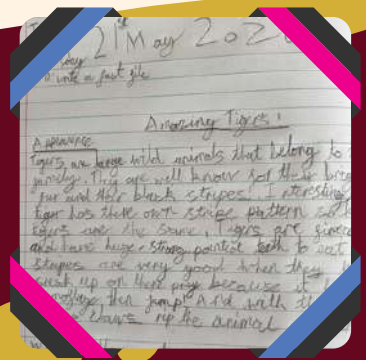 21st May 202
to write a fact file
Amazing Tigers!
Appearance
Tigers are large wild animals that belong to
They are well know for their
fur and their black stripes! Interesting
tiger has there own stripe pattern so
tigers are the same, Tigers are
and have huge, strong pointed teeth to eat
stripes are very good when they
sneak up on their prey because it
then jump! And with
claws rip the animal